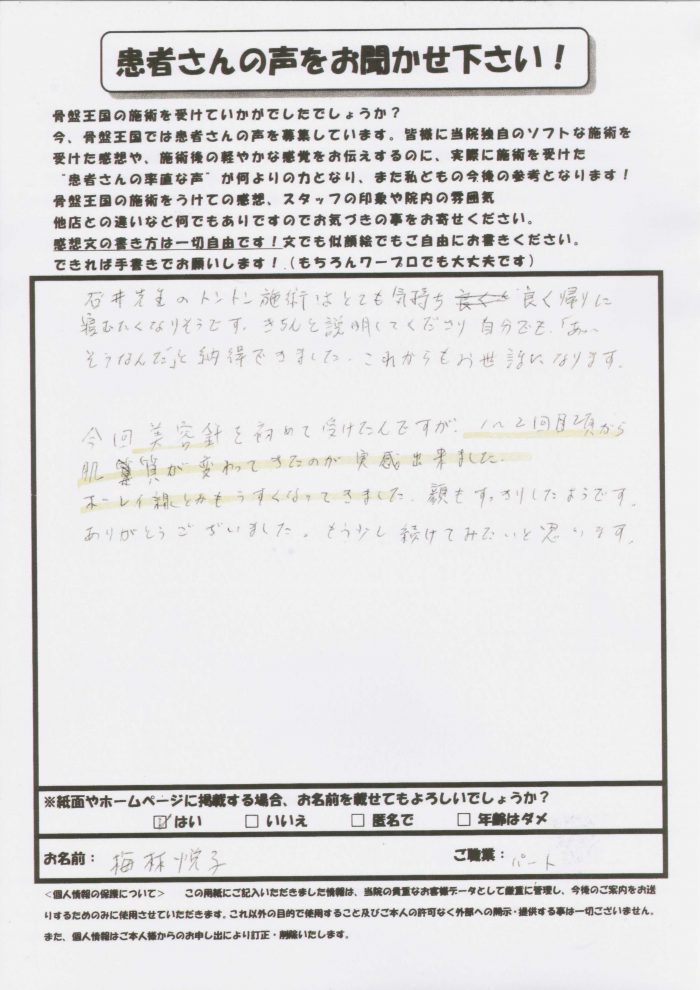 患者さんの声をお聞かせ下さい！
骨盤王国の施術を受けていかがでしたでしょうか？
今、骨盤王国では患者さんの声を募集しています。皆様に当院独自のソフトな施術を
受けた感想や、施術後の軽やかな感覚をお伝えするのに、実際に施術を受けた
"患者さんの率直な声"が何よりの力となり、また私どもの今後の参考となります！
骨盤王国の施術をうけての感想、スタッフの印象や院内の雰囲気
他店との違いなど何でもありですのでお気づきの事をお寄せください。
感想文の書き方は一切自由です！文でも似顔絵でもご自由にお書きください。
できれば手書きでお願いします！（もちろんワープロでも大丈夫です）
石井先生のトントン施術はとても気持ち 良く帰りに
寝むたくなりそうです。きちんと説明してくださり自分でも、「あ、
そうなんだ」と納得できました。これからもお世話になります。
今回 美容針を初めて受けたんですが、1〜2回目頃から
肌 質が変わってきたのが実感出来ました。
ホーレイ線とかもうすくなってきました。額もすっきりしたようです。
ありがとうございました。もう少し続けてみたいと思います。
※紙面やホームページに掲載する場合、お名前を載せてもよろしいでしょうか？
☑ はい □ いいえ □ 匿名で □ 年齢はダメ
お名前： 梅林悦子 ご職業： パート
＜個人情報の保護について＞ この用紙にご記入いただきました情報は、当院の貴重なお客様データとして厳重に管理し、今後のご案内をお送
りするためのみに使用させていただきます。これ以外の目的で使用すること及びご本人の許可なく外部への開示・提供する事は一切ございません。
また、個人情報はご本人様からのお申し出により訂正・削除いたします。